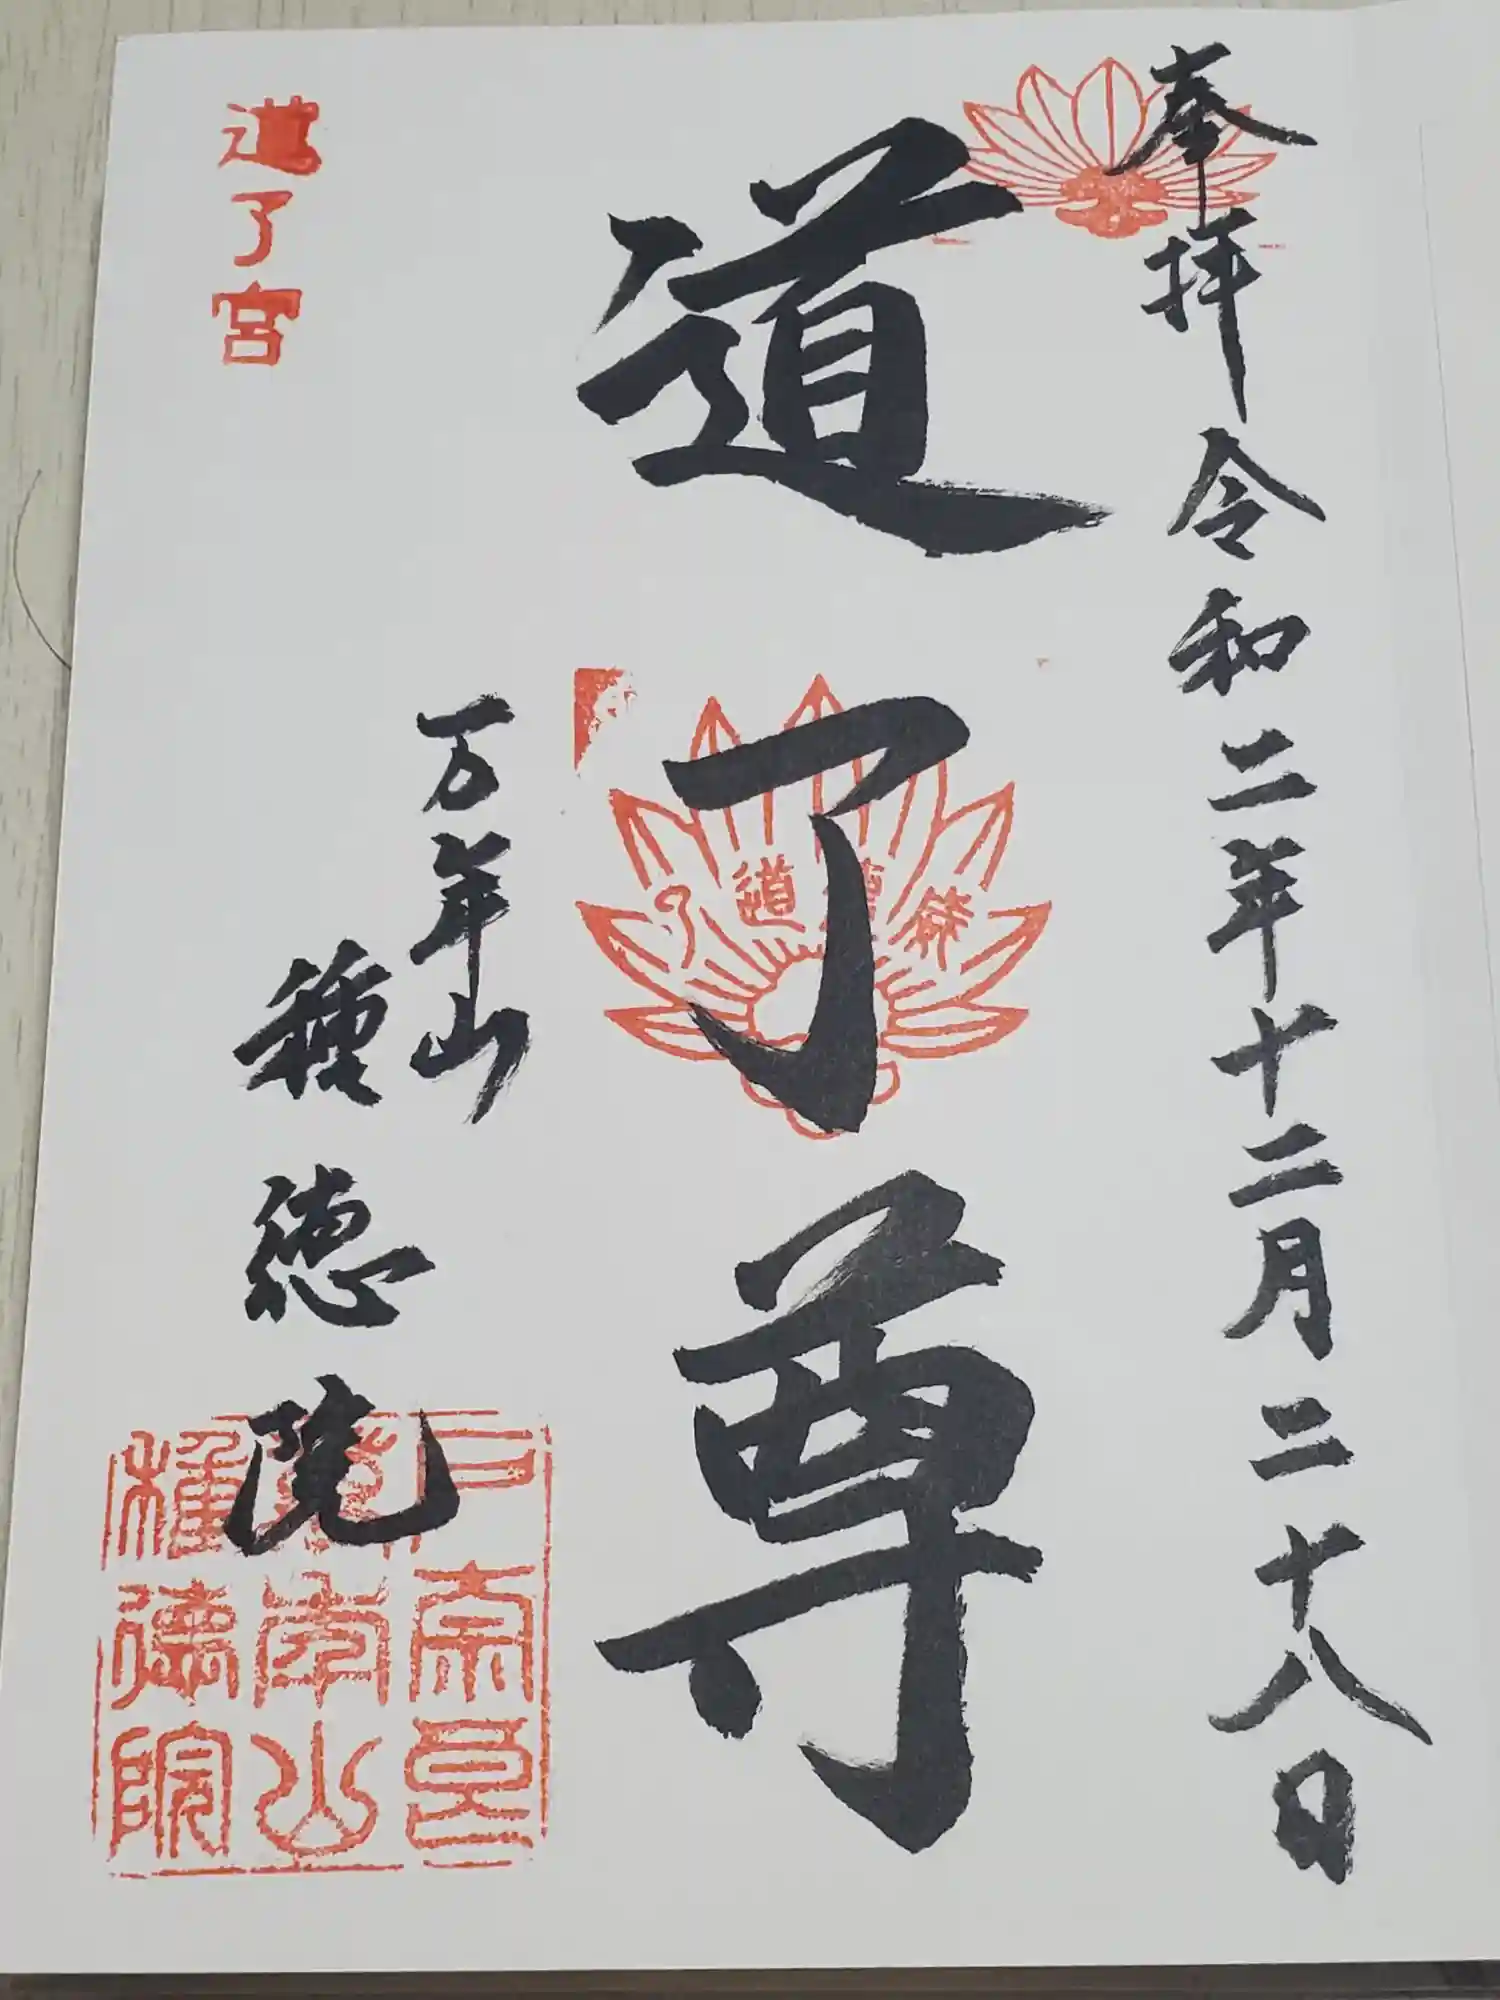 奉拝 令和二年十二月二十八日
道了尊
万年山
種徳院
道了宮
種徳院